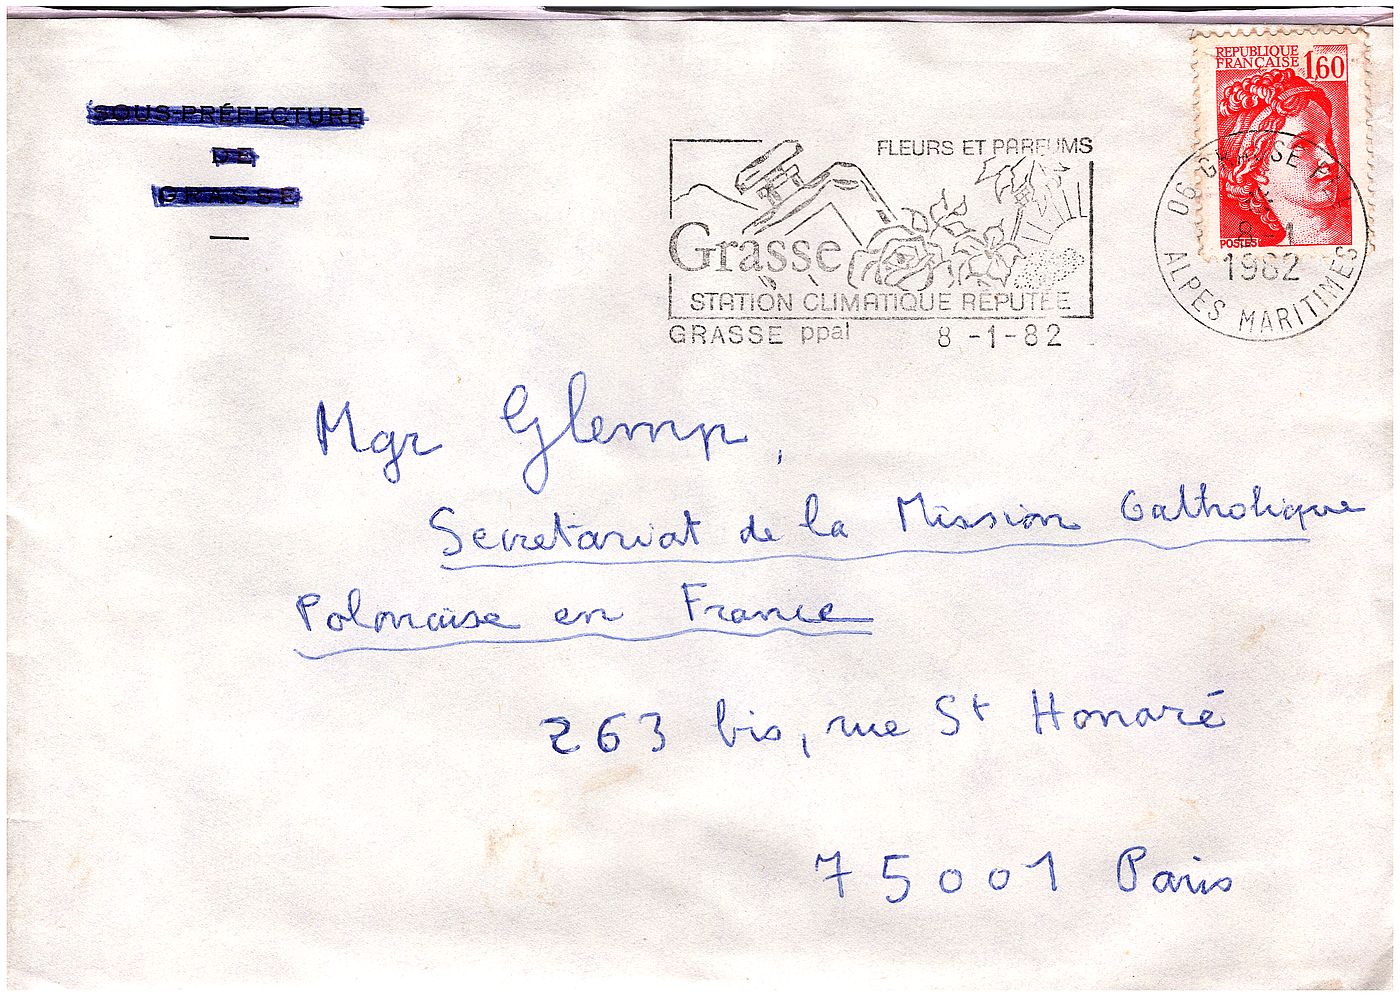 SOUS-PRÉFECTURE
DE
GRASSE
REPUBLIQUE
FRANÇAISE 1,60
POSTES
FLEURS ET PARFUMS
Grasse
STATION CLIMATIQUE RÉPUTÉE
GRASSE ppal 8-1-82
06 GRASSE PPAL
8-1
1982
ALPES MARITIMES
Mgr Glemp,
Secretariat de la Mission Catholique
Polonaise en France
263 bis, rue St Honoré
75001 Paris